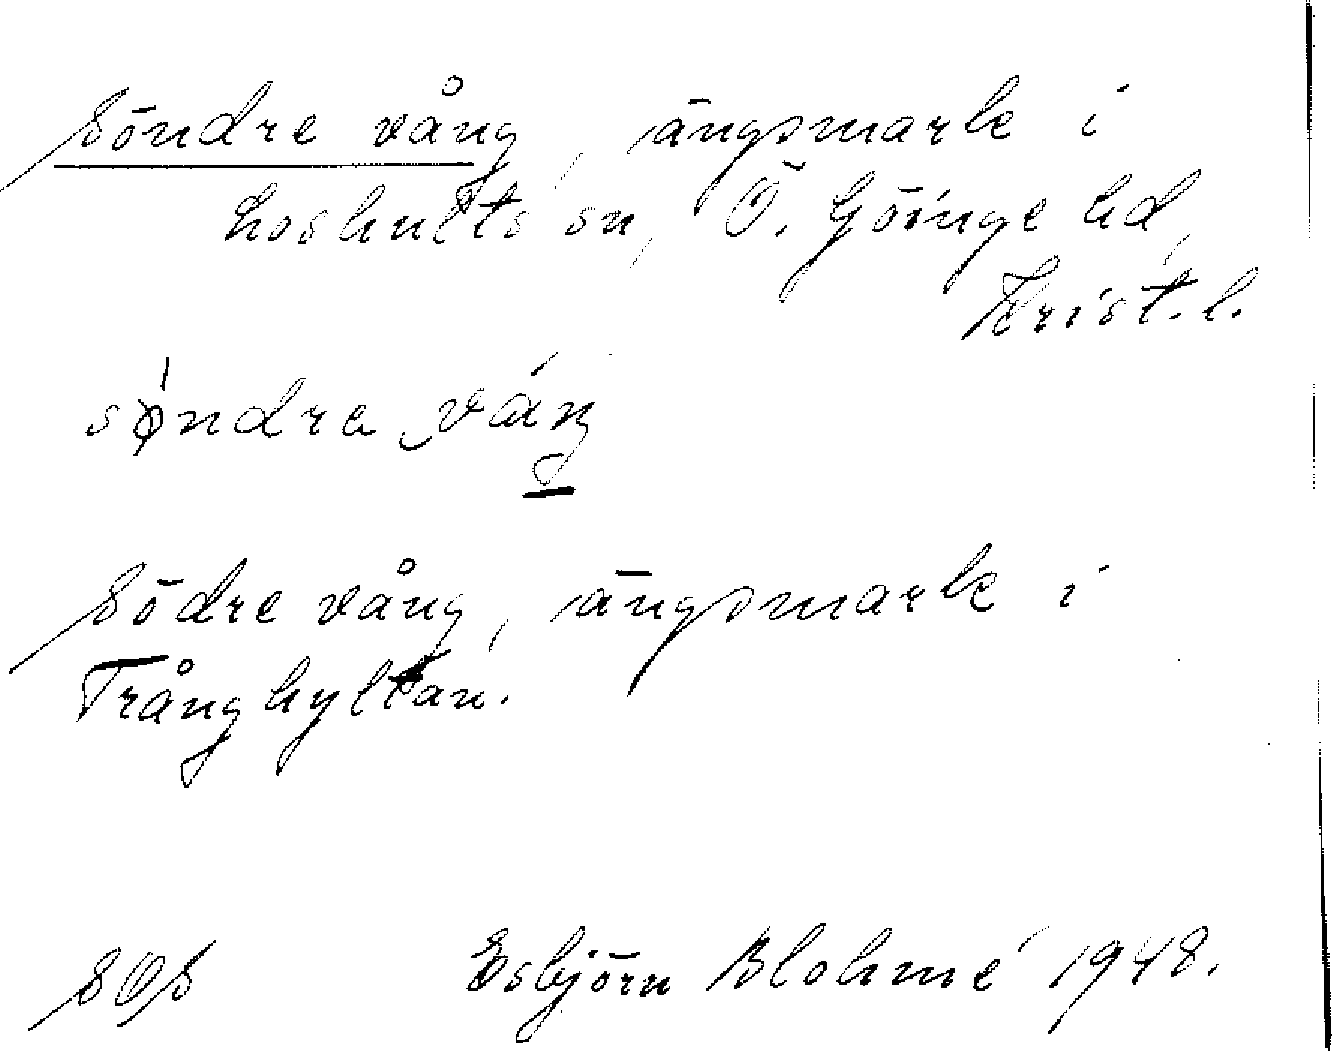 Söndre vång, ängsmark i
Loshults sn, Ö. Göinge hd,
Krist. l.
søndra váŋ
Södre vång, ängsmark i
Trånghyltan.
SOS Esbjörn Blohmé 1948.